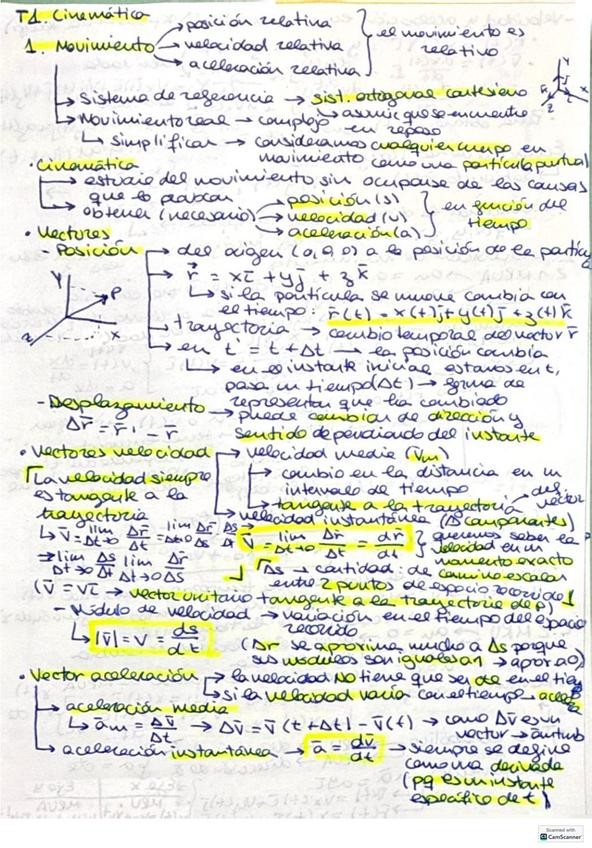 T1. Cinemática
1. Movimiento → posición relativa
→ velocidad relativa
→ aceleración relativa
el movimiento es relativo
→ Sistema de referencia → sist. ortogonal cartesiano
→ Movimiento real → complejo → asumir que se encuentra en reposo
→ simplificar → consideramos cualquier cuerpo en
movimiento como una partícula puntual
· Cinemática
→ estudio del movimiento sin ocuparse de las causas
que lo producen
→ obtener (necesario) → posición (s)
→ velocidad (v)
→ aceleración (a)
en función del tiempo
· Vectores
- Posición → del origen (0,0,0) a la posición de la partíc
→ r⃗ = xī + yj̄ + zk̄
→ si la partícula se mueve cambia con
el tiempo: r̄(t) = x(t)ī + y(t)j̄ + z(t)k̄
→ trayectoria → cambio temporal del vector r̄
→ en t' = t + Δt → la posición cambia
→ en el instante inicial estamos en t,
pasa un tiempo (Δt) → forma de
representar que ha cambiado
Y P X Z
- Desplazamiento → puede cambiar de dirección y
Δr̄ = r̄' - r̄ sentido dependiendo del instante
· Vectores velocidad → velocidad media (v̄m)
→ cambio en la distancia en un
intervalo de tiempo
→ tangente a la trayectoria → del vector
→ velocidad instantánea (Δ componentes)
v̄ = lim Δt→0 Δr̄/Δt = dr̄/dt
queremos saber la
velocidad en un
momento exacto
La velocidad siempre
es tangente a la
trayectoria
→ v̄ = lim Δt→0 Δr̄/Δt = lim Δt→0 Δr̄/Δs Δs/Δt
→ lim Δt→0 Δs/Δt lim Δt→0 Δr̄/Δs
Δs → cantidad: de camino escalar
entre 2 puntos de espacio recorrido
(v̄ = vτ̄ → vector unitario tangente a la trayectoria de P)
- Módulo de velocidad → variación en el tiempo del espacio
recorrido
→ |v̄| = v = ds/dt
(Δr se aproxima mucho a Δs porque
sus módulos son iguales a 1 → aprox a 0)
· Vector aceleración → la velocidad NO tiene que ser cte en el tiem
→ si la velocidad varía con el tiempo → aceler
→ aceleración media
→ ām = Δv̄/Δt → Δv̄ = v̄(t+Δt) - v̄(t) → como Δv̄ es un
vector →
→ aceleración instantánea → ā = dv̄/dt → siempre se define
como una derivada
(pq es un instante
específico de t)
Scanned with
CamScanner